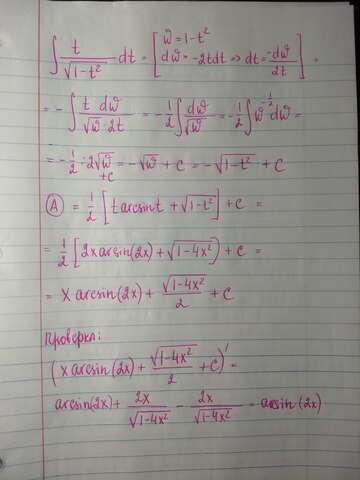 ∫ t/√(1-t²) dt = [ω = 1-t²
dω = -2tdt => dt = -dω/2t] =
= -∫ t dω/(√ω·2t) = -1/2 ∫ dω/√ω = -1/2 ∫ ω^(-1/2) dω =
= -1/2 · 2√ω + C = -√ω + C = -√(1-t²) + C
(A) = 1/2 [t arcsin t + √(1-t²)] + C =
= 1/2 [2x arcsin(2x) + √(1-4x²)) + C =
= x arcsin(2x) + √(1-4x²)/2 + C
Проверка:
(x arcsin(2x) + √(1-4x²)/2 + C)' =
arcsin(2x) + 2x/√(1-4x²) - 2x/√(1-4x²) = arcsin(2x)